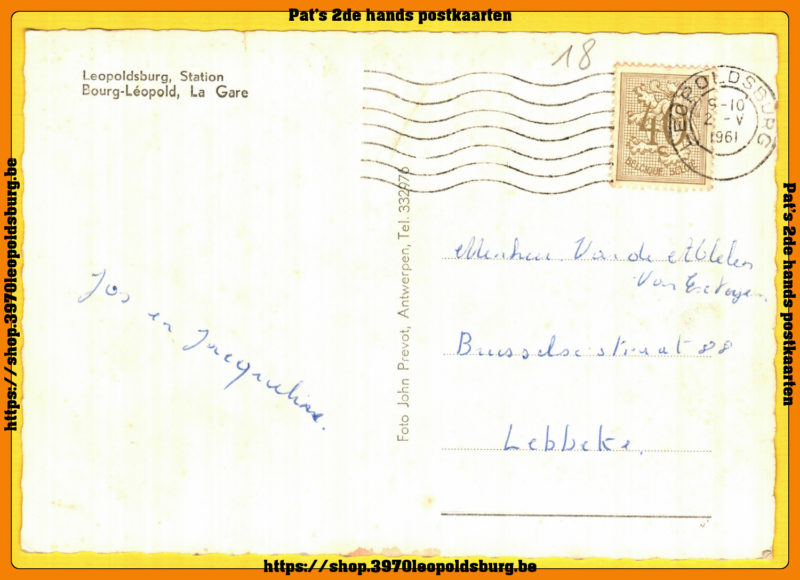 Pat's 2de hands postkaarten
18
Leopoldsburg, Station
Bourg-Léopold, La Gare
LEOPOLDSBURG
9-10
2 -V
1961
40
BELGIQUE BELGIE
Foto John Prevot, Antwerpen, Tel. 332976
Jos en Jacqueline.
Van de
Van
Brusselsestraat 88
Lebbeke.
https://shop.3970leopoldsburg.be
Pat's 2de hands postkaarten
https://shop.3970leopoldsburg.be